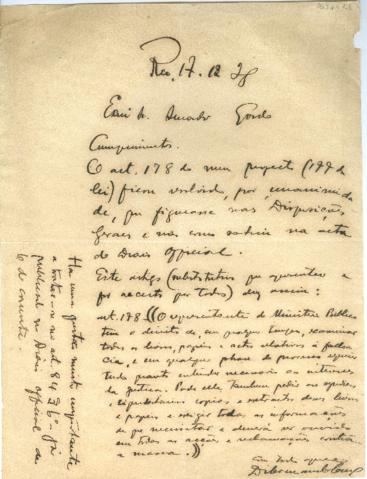 Rio, 17. 12
Cumprimentos.
O art. 178 do meu projecto
lei) ficou resolvido, por unanimida
de, que figurasse nas Disposições
Geraes e não como sahiu na acta
do Diario Official.
Este artigo (substitutivo que apresentei e
foi acceito por todos) diz assim:
art. 178 ((O representante do Ministerio Publico
tem o direito de, em qualquer tempo, examinar
todos os livros, papeis e actos relativos á fallen
cia, e em qualquer phase do processo
tudo quanto entender necessario aos interesses
da justiça. Pode elle tambem pedir aos syndicos
e liquidatarios copias e extractos dos livros
e papeis e exigir todas as informações
de que necessitar e deverá ser ouvido
em todas as acções e reclamações contra
a massa.))
Ha uma questão muito importante
a tratar-se no art. 84
publicado no Diario Official de
6 do corrente.